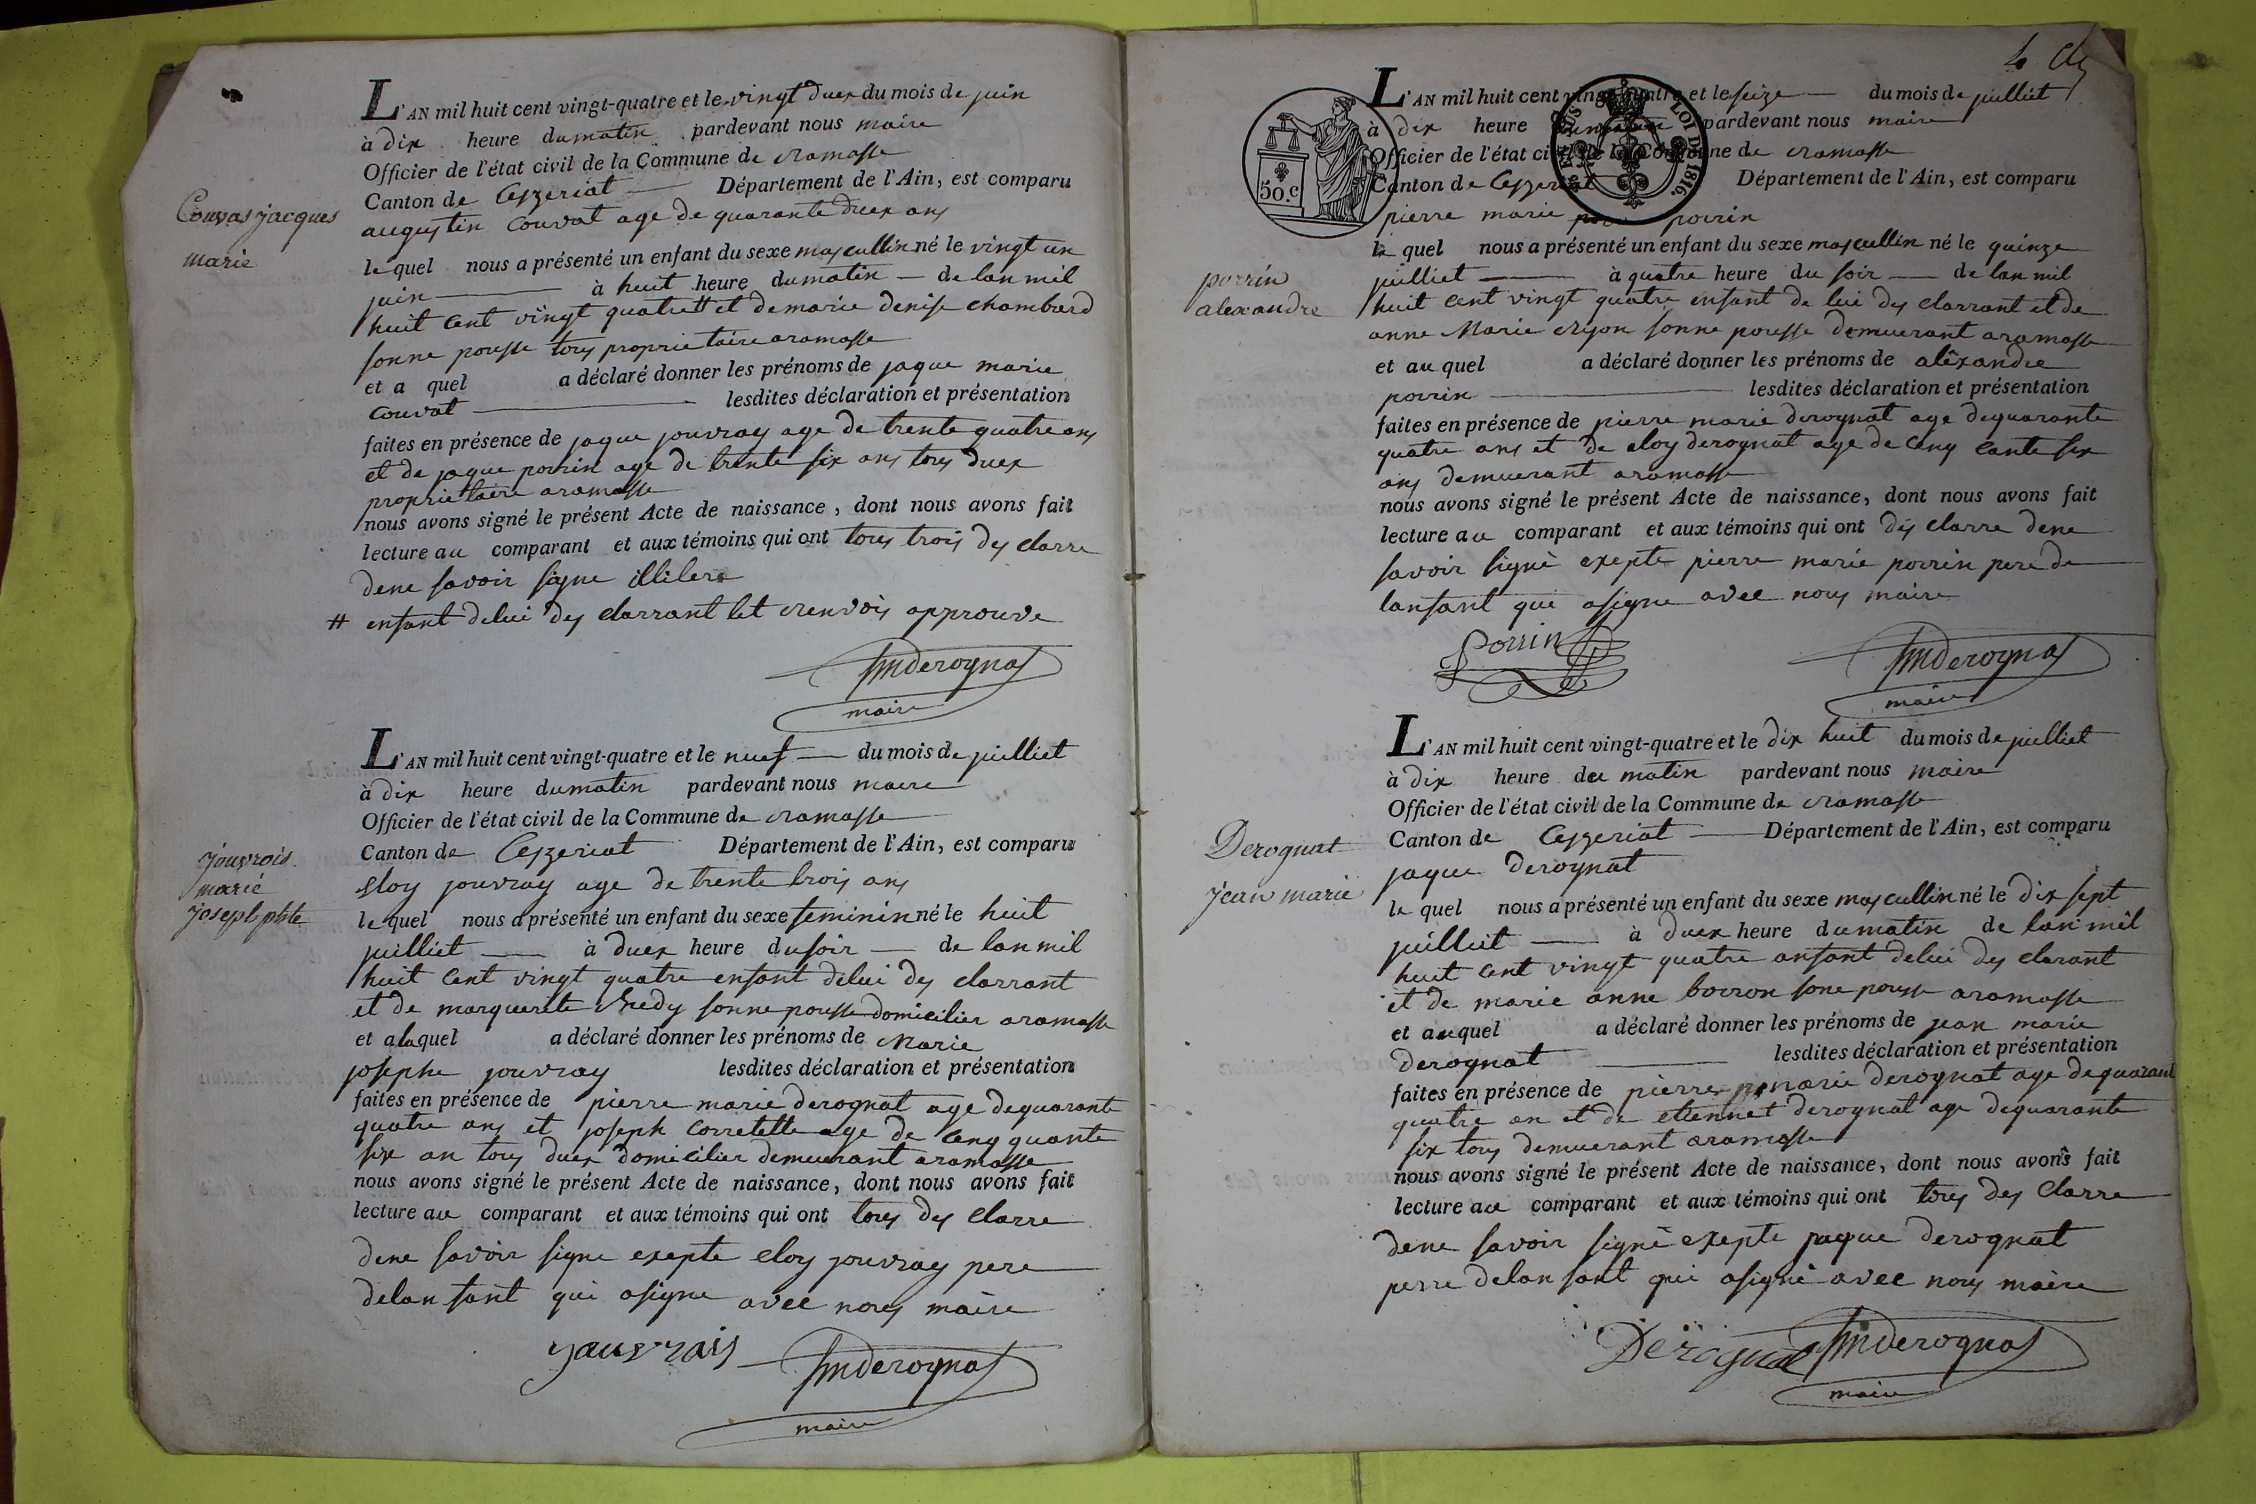 Couvas jacques
marie
L'AN mil huit cent vingt-quatre et le vingt duex du mois de juin
à dix heure dumatin pardevant nous maire
Officier de l'état civil de la Commune de ramasse
Canton de Ceyzeriat Département de l'Ain, est comparu
augustin couvat age de quarante duex ans
le quel nous a présenté un enfant du sexe mascullin né le vingt un
juin à huit heure dumatin de lan mil
huit cent vingt quatre # et de marie denise chambard
sonne pousse tous proprietaire aramasse
et a quel a déclaré donner les prénoms de jaque marie
couvat lesdites déclaration et présentation
faites en présence de jaque jouvray age de trente quatre ans
et de jaque poirin age de trente six ans tous duex
proprietaire aramasse
nous avons signé le présent Acte de naissance, dont nous avons fait
lecture au comparant et aux témoins qui ont tous trois des clarre
dene savoir signe illilere
# enfant delui des clarrant let renvois approuve
maire
jouvrois
marie
josephte
L'AN mil huit cent vingt-quatre et le nuef du mois de juilliet
à dix heure dumatin pardevant nous maire
Officier de l'état civil de la Commune de ramasse
Canton de Ceyzeriat Département de l'Ain, est comparu
eloy jouvray age de trente trois ans
le quel nous a présenté un enfant du sexe feminin né le huit
juilliet à duex heure dusoir de lan mil
huit cent vingt quatre enfant delui des clarrant
et de marguerite sonne pousse domicilier aramasse
et alaquel a déclaré donner les prénoms de Marie
josephe jouvray lesdites déclaration et présentation
faites en présence de pierre marie derognat age dequarante
quatre ans et joseph corretette age de cenq quante
six an tous duex domicilier demuerant aramasse
nous avons signé le présent Acte de naissance, dont nous avons fait
lecture au comparant et aux témoins qui ont tous des clarre
dene savoir signe exepte eloy jouvray pere
delan fant qui asigne avec nous maire
jauvrais
maire
4
50.c
LOI DE 1816.
porrin
alexandre
L'AN mil huit cent vingt-quatre et le seize du mois de juilliet
à dix heure dumatin pardevant nous maire
Officier de l'état civil de la Commune de ramasse
Canton de Ceyzeriat Département de l'Ain, est comparu
pierre marie porrin
le quel nous a présenté un enfant du sexe mascullin né le quinze
juilliet à quatre heure du soir de lan mil
huit cent vingt quatre enfant de lui des clarrant et de
anne Marie sonne pousse demuerant aramasse
et au quel a déclaré donner les prénoms de aléxandre
poirin lesdites déclaration et présentation
faites en présence de pierre marie derognat age dequarante
quatre ans et de eloy derognat age de cenq cante six
ans demuerant aramasse
nous avons signé le présent Acte de naissance, dont nous avons fait
lecture au comparant et aux témoins qui ont des clarre dene
savoir signè exepte pierre marie porrin pere de
lanfant qui asigne avec nous maire
Porrin
maire
Derognat
jean marie
L'AN mil huit cent vingt-quatre et le dix huit du mois de juilliet
à dix heure du matin pardevant nous maire
Officier de l'état civil de la Commune de ramasse
Canton de Ceyzeriat Département de l'Ain, est comparu
jaque derognat
le quel nous a présenté un enfant du sexe mascullin né le dix sept
juilliet à duex heure dumatin de lan mil
huit cent vingt quatre anfant delui des clarant
et de marie anne boiron sone pousse aramasse
et auquel a déclaré donner les prénoms de jean marie
derognat lesdites déclaration et présentation
faites en présence de pierre marie derognat age dequarant
quatre an et de etiennet derognat age dequarante
six tous demuerant aramasse
nous avons signé le présent Acte de naissance, dont nous avons fait
lecture au comparant et aux témoins qui ont tous des clarre
dene savoir signè exepte jaque derognat
perre delan fant qui asignè avec nous maire
Derognat
maire